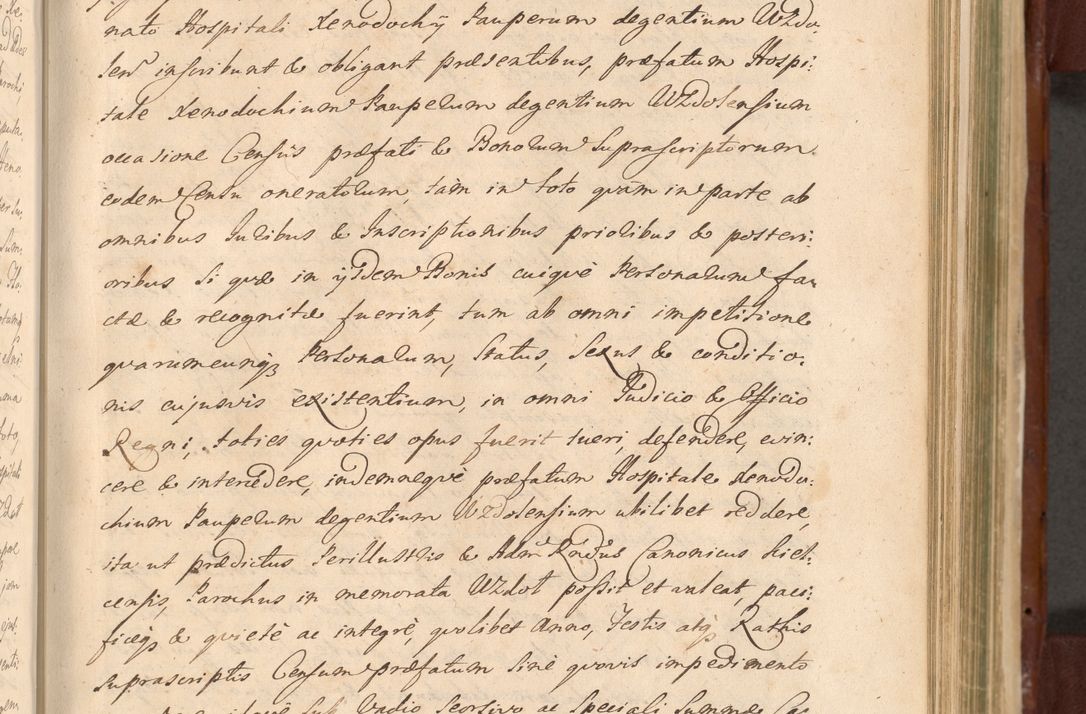 nato Hospitali Xenodochÿ Pauperum degentium Wzdo,
len inscribunt & obligant præsentibus, præfatum Hospi:
tale Xenodochium Pauperum degentium Wzdolensium
occasione Censûs præfati & Bonorum suprascriptorum
eodem Censu oneratorum, tàm in toto quam in parte ab
omnibus Juribus & Inscriptionibus prioribus & posteri:
oribus si quæ in ÿsdem Bonis cuiquè Personarum fa,
ctæ & recognitæ fuerint, tum ab omni impetitione
quarumcunq3 Personarum, Status, Sexus & conditio,
nis cujusvis existentium, in omni Judicio & Officio
Regni, toties quoties opus fuerit tueri, defendere, evin:
cere & intercedere, indemneqvè præfatum Hospitale Xenodo:
chium Pauperum degentium Wzdolensium ubilibet reddere,
ita ut prædictus Perillustris & Adm Rndus Canonicus Kiel:
censis, Parochus in memorata Wzdol possit et valeat, paci:
ficèq3 & quietè ac integrè, quolibet Anno, Festis atq3 Rathis
suprascriptis Censum præfatum sinè quovis impedimento
Vadio Seorsivo ac Speciali Summæ